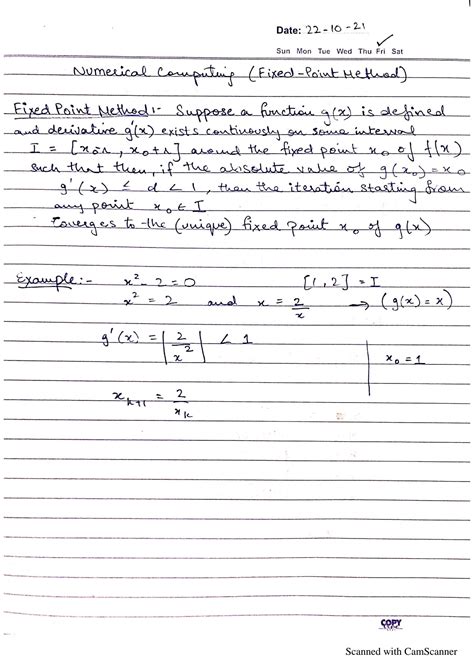 Date: 22-10-21
Sun Mon Tue Wed Thu Fri Sat
Numerical Computing (Fixed-Point Method)
Fixed Point Method:- Suppose a function g(x) is defined
and derivative g'(x) exists continously on some interval
I = [x₀-r, x₀+r] around the fixed point x₀ of f(x)
such that then, if the absolute value of g(x₀) = x₀
g'(x) ≤ d < 1, then the iteration starting from
any point x₀ ∈ I
Coverges to the (unique) fixed point x₀ of g(x)
Example:- x² - 2 = 0 [1, 2] = I
x² = 2 and x = 2/x → (g(x) = x)
g'(x) = |2/x²| < 1
x₀ = 1
xₖ₊₁ = 2/xₖ
COPY
Scanned with CamScanner